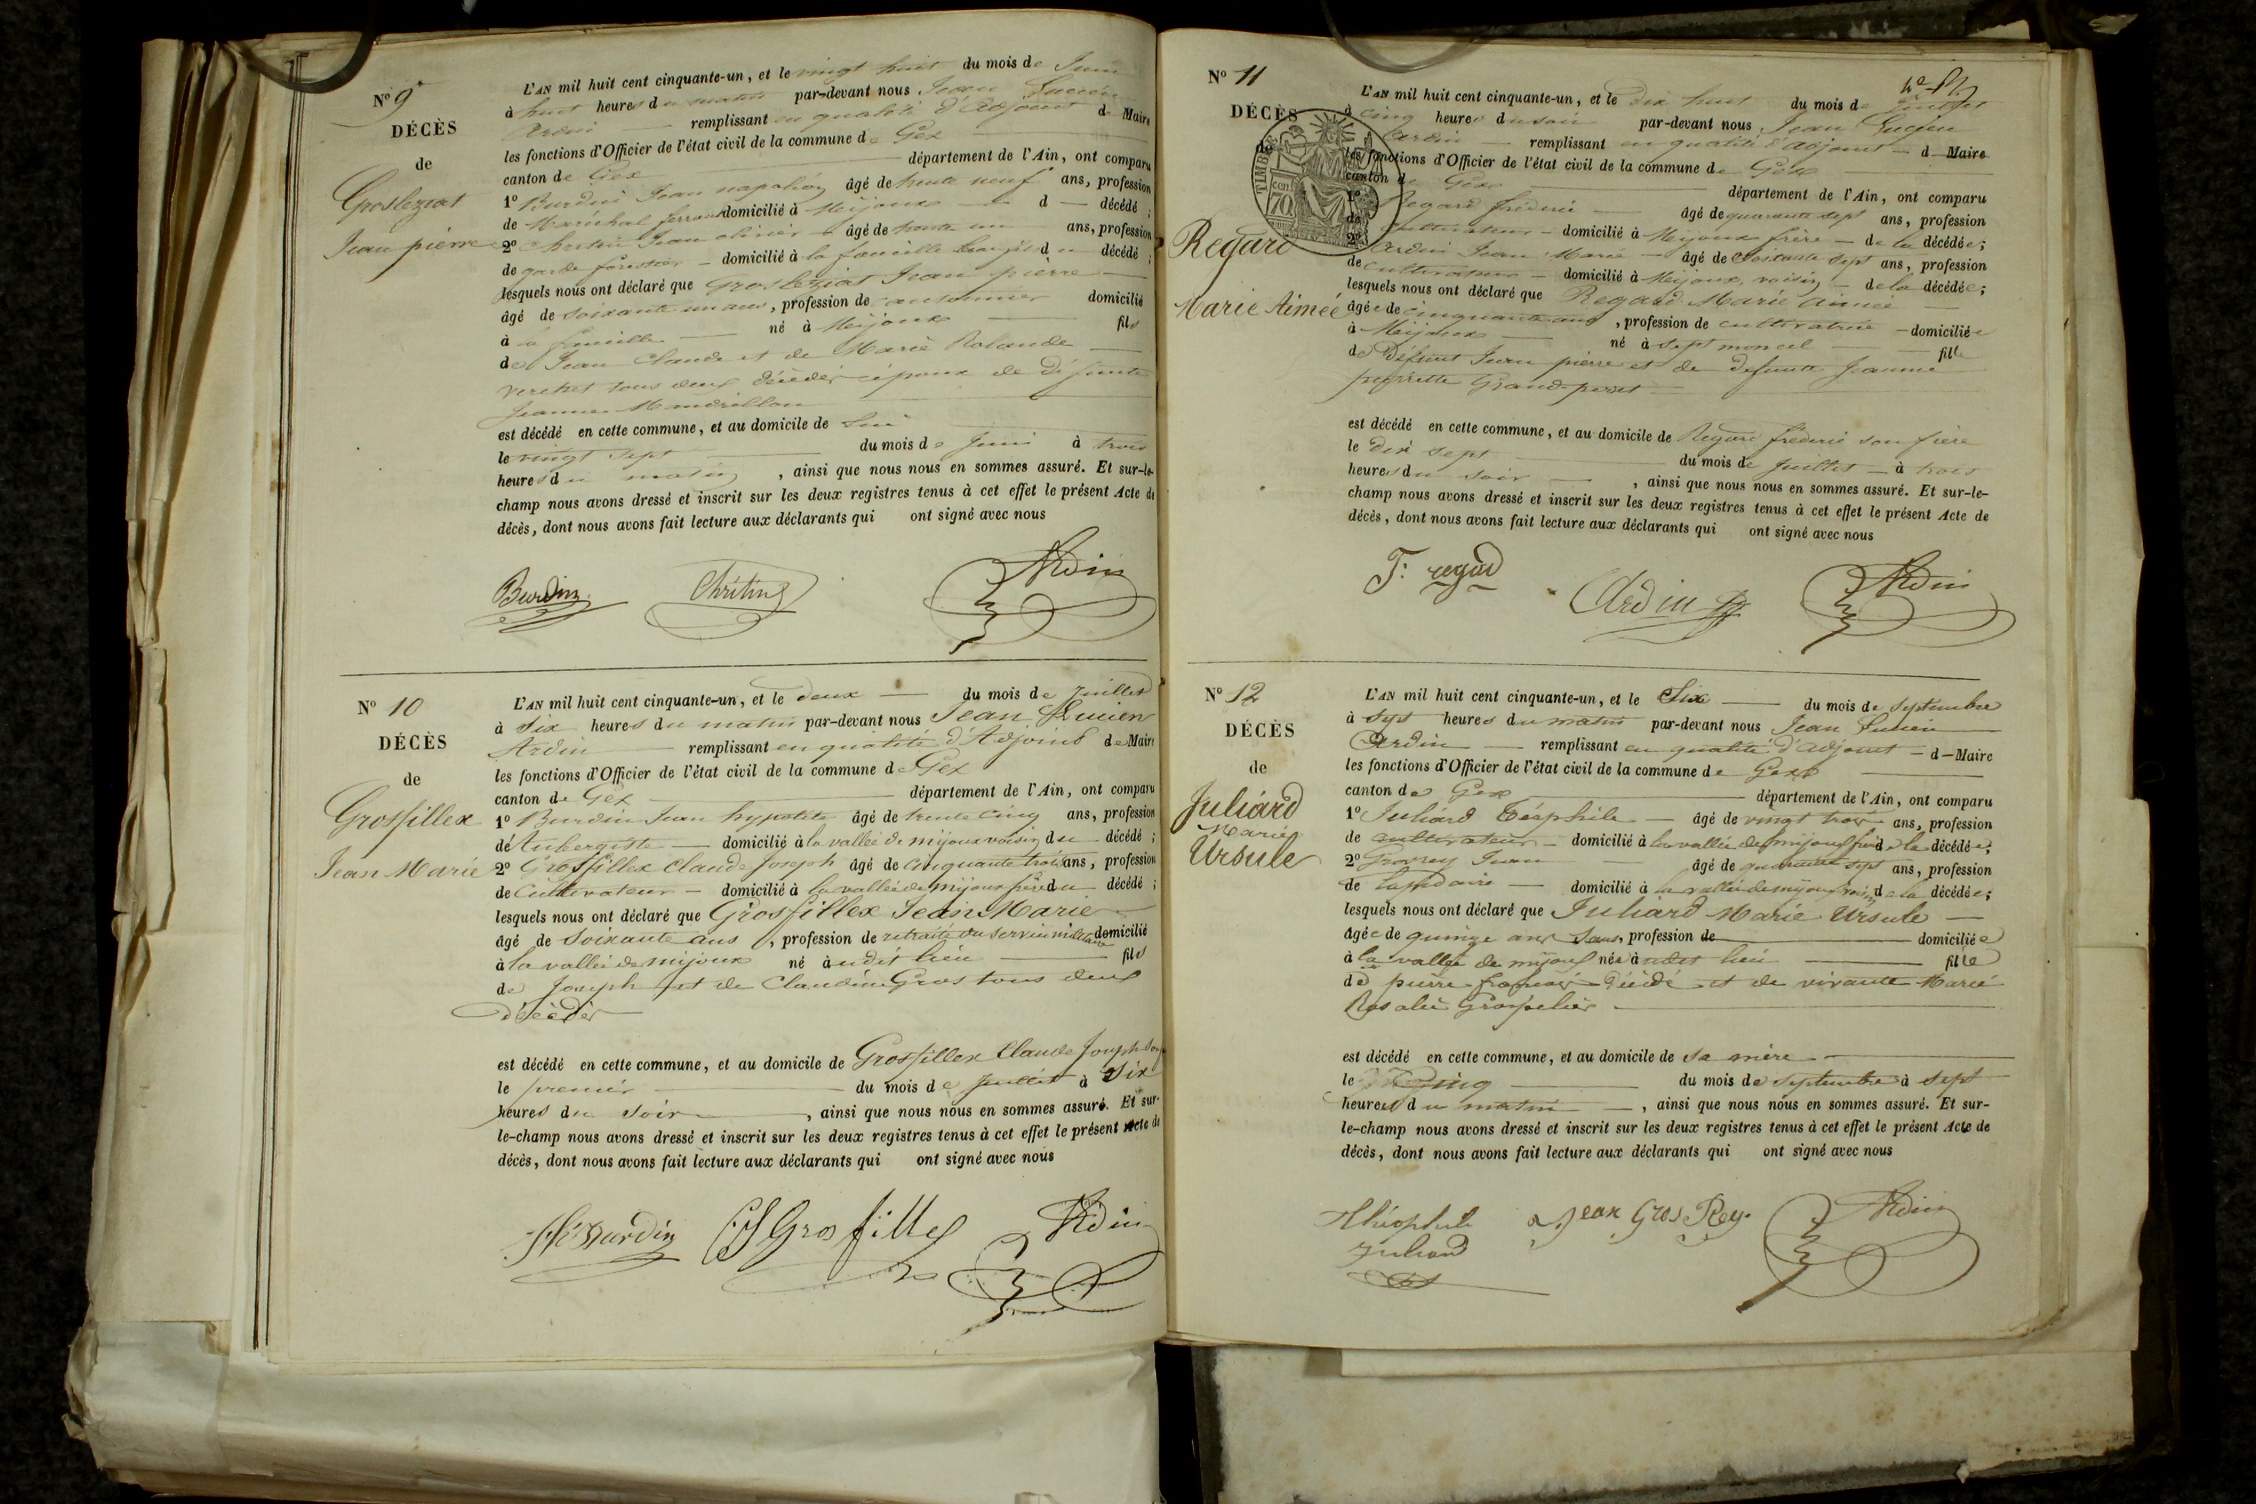 N° 9
DÉCÈS
de
Grosleziat
Jean pierre
L'AN mil huit cent cinquante-un, et le vingt huit du mois de Juin
à huit heures du matin par-devant nous Jean Lucien
Ardin — remplissant en qualité d'Adjoint d- Maire
les fonctions d'Officier de l'état civil de la commune de Gex
canton de Gex — département de l'Ain, ont comparu
1° Burdin Jean napoléon âgé de trente neuf ans, profession
de Maréchal ferrant domicilié à Mijoux — d — décédé ;
2° Jean olivier — âgé de trente un ans, profession
de garde forestier — domicilié à la faucille du décédé ;
lesquels nous ont déclaré que Grosleziat Jean pierre —
âgé de soixante un ans, profession de cantonnier domicilié
à la faucille — né à Mijoux — fils
de Jean Claude et de Marie Rolande —
verchet tous deux décédés époux de défunte
Jeanne Mandrillon —
est décédé en cette commune, et au domicile de lui
le vingt sept — du mois de Juin à trois
heures du matin, ainsi que nous nous en sommes assuré. Et sur-le-
champ nous avons dressé et inscrit sur les deux registres tenus à cet effet le présent Acte de
décès, dont nous avons fait lecture aux déclarants qui ont signé avec nous
Burdin Ardin
N° 10
DÉCÈS
de
Grosfillex
Jean Marie
L'AN mil huit cent cinquante-un, et le deux — du mois de Juillet
à six heures du matin par-devant nous Jean Lucien
Ardin — remplissant en qualité d'Adjoint de Maire
les fonctions d'Officier de l'état civil de la commune de Gex
canton de Gex — département de l'Ain, ont comparu
1° Burdin Jean hypolite âgé de trente cinq ans, profession
de Aubergiste — domicilié à la vallée de mijoux voisin du décédé ;
2° Grosfillex Claude Joseph âgé de cinquante trois ans, profession
de Cultivateur — domicilié à la vallée de mijoux frère du décédé ;
lesquels nous ont déclaré que Grosfillex Jean Marie —
âgé de soixante ans, profession de retraité du service militaire domicilié
à la vallée de mijoux né àudit lieu — fils
de Joseph et de Claudine Gros tous deux
décédés —
est décédé en cette commune, et au domicile de Grosfillex Claude Joseph son
le premier — du mois de Juillet à six
heures du soir —, ainsi que nous nous en sommes assuré. Et sur-
le-champ nous avons dressé et inscrit sur les deux registres tenus à cet effet le présent Acte de
décès, dont nous avons fait lecture aux déclarants qui ont signé avec nous
Burdin CJ Gros fillex Ardin
N° 11
DÉCÈS
de
Regard
Marie Aimée
TIMBRE
70
L'AN mil huit cent cinquante-un, et le dix huit du mois de Juillet
à cinq heures du soir par-devant nous Jean Lucien
Ardin — remplissant en qualité d'Adjoint — d Maire
les fonctions d'Officier de l'état civil de la commune de Gex
canton de Gex département de l'Ain, ont comparu
1° Regard frédéric — âgé de quarante sept ans, profession
de cultivateur — domicilié à Mijoux frère — de la décédée ;
2° Ardin Jean Marie — âgé de sept ans, profession
de cultivateur — domicilié à Mijoux, voisin — de la décédée ;
lesquels nous ont déclaré que Regard Marie aimée —
âgée de cinquante ans, profession de cultivatrice — domiciliée
à Mijoux — né à sept moncel — fille
de défunt Jean pierre et de défunte Jeanne
pierrette Grand-perret —
est décédé en cette commune, et au domicile de Regard frédéric son frère
le dix sept — du mois de Juillet — à trois
heures du soir —, ainsi que nous nous en sommes assuré. Et sur-le-
champ nous avons dressé et inscrit sur les deux registres tenus à cet effet le présent Acte de
décès, dont nous avons fait lecture aux déclarants qui ont signé avec nous
F. regard Ardin Ardin
N° 12
DÉCÈS
de
Juliard
Marie
Ursule
L'AN mil huit cent cinquante-un, et le Six — du mois de Septembre
à sept heures du matin par-devant nous Jean Lucien
Ardin — remplissant en qualité d'Adjoint — d—Maire
les fonctions d'Officier de l'état civil de la commune de Gex
canton de Gex — département de l'Ain, ont comparu
1° Juliard Téophile — âgé de vingt trois ans, profession
de cultivateur — domicilié à la vallée de mijoux de la décédée ;
2° Grosrey Jean — âgé de quarante sept ans, profession
de lapidaire — domicilié à la vallée de mijoux voisin de la décédée ;
lesquels nous ont déclaré que Juliard Marie Ursule —
âgée de quinze ans sans, profession de — domiciliée
à la vallée de mijoux née àudit lieu — fille
de pierre françois décédé et de vivante Marie
Rosalie Grospelier —
est décédé en cette commune, et au domicile de sa mère —
le cinq — du mois de Septembre à sept
heures du matin —, ainsi que nous nous en sommes assuré. Et sur-
le-champ nous avons dressé et inscrit sur les deux registres tenus à cet effet le présent Acte de
décès, dont nous avons fait lecture aux déclarants qui ont signé avec nous
théophile Jean Gros Rey Ardin
Juliard